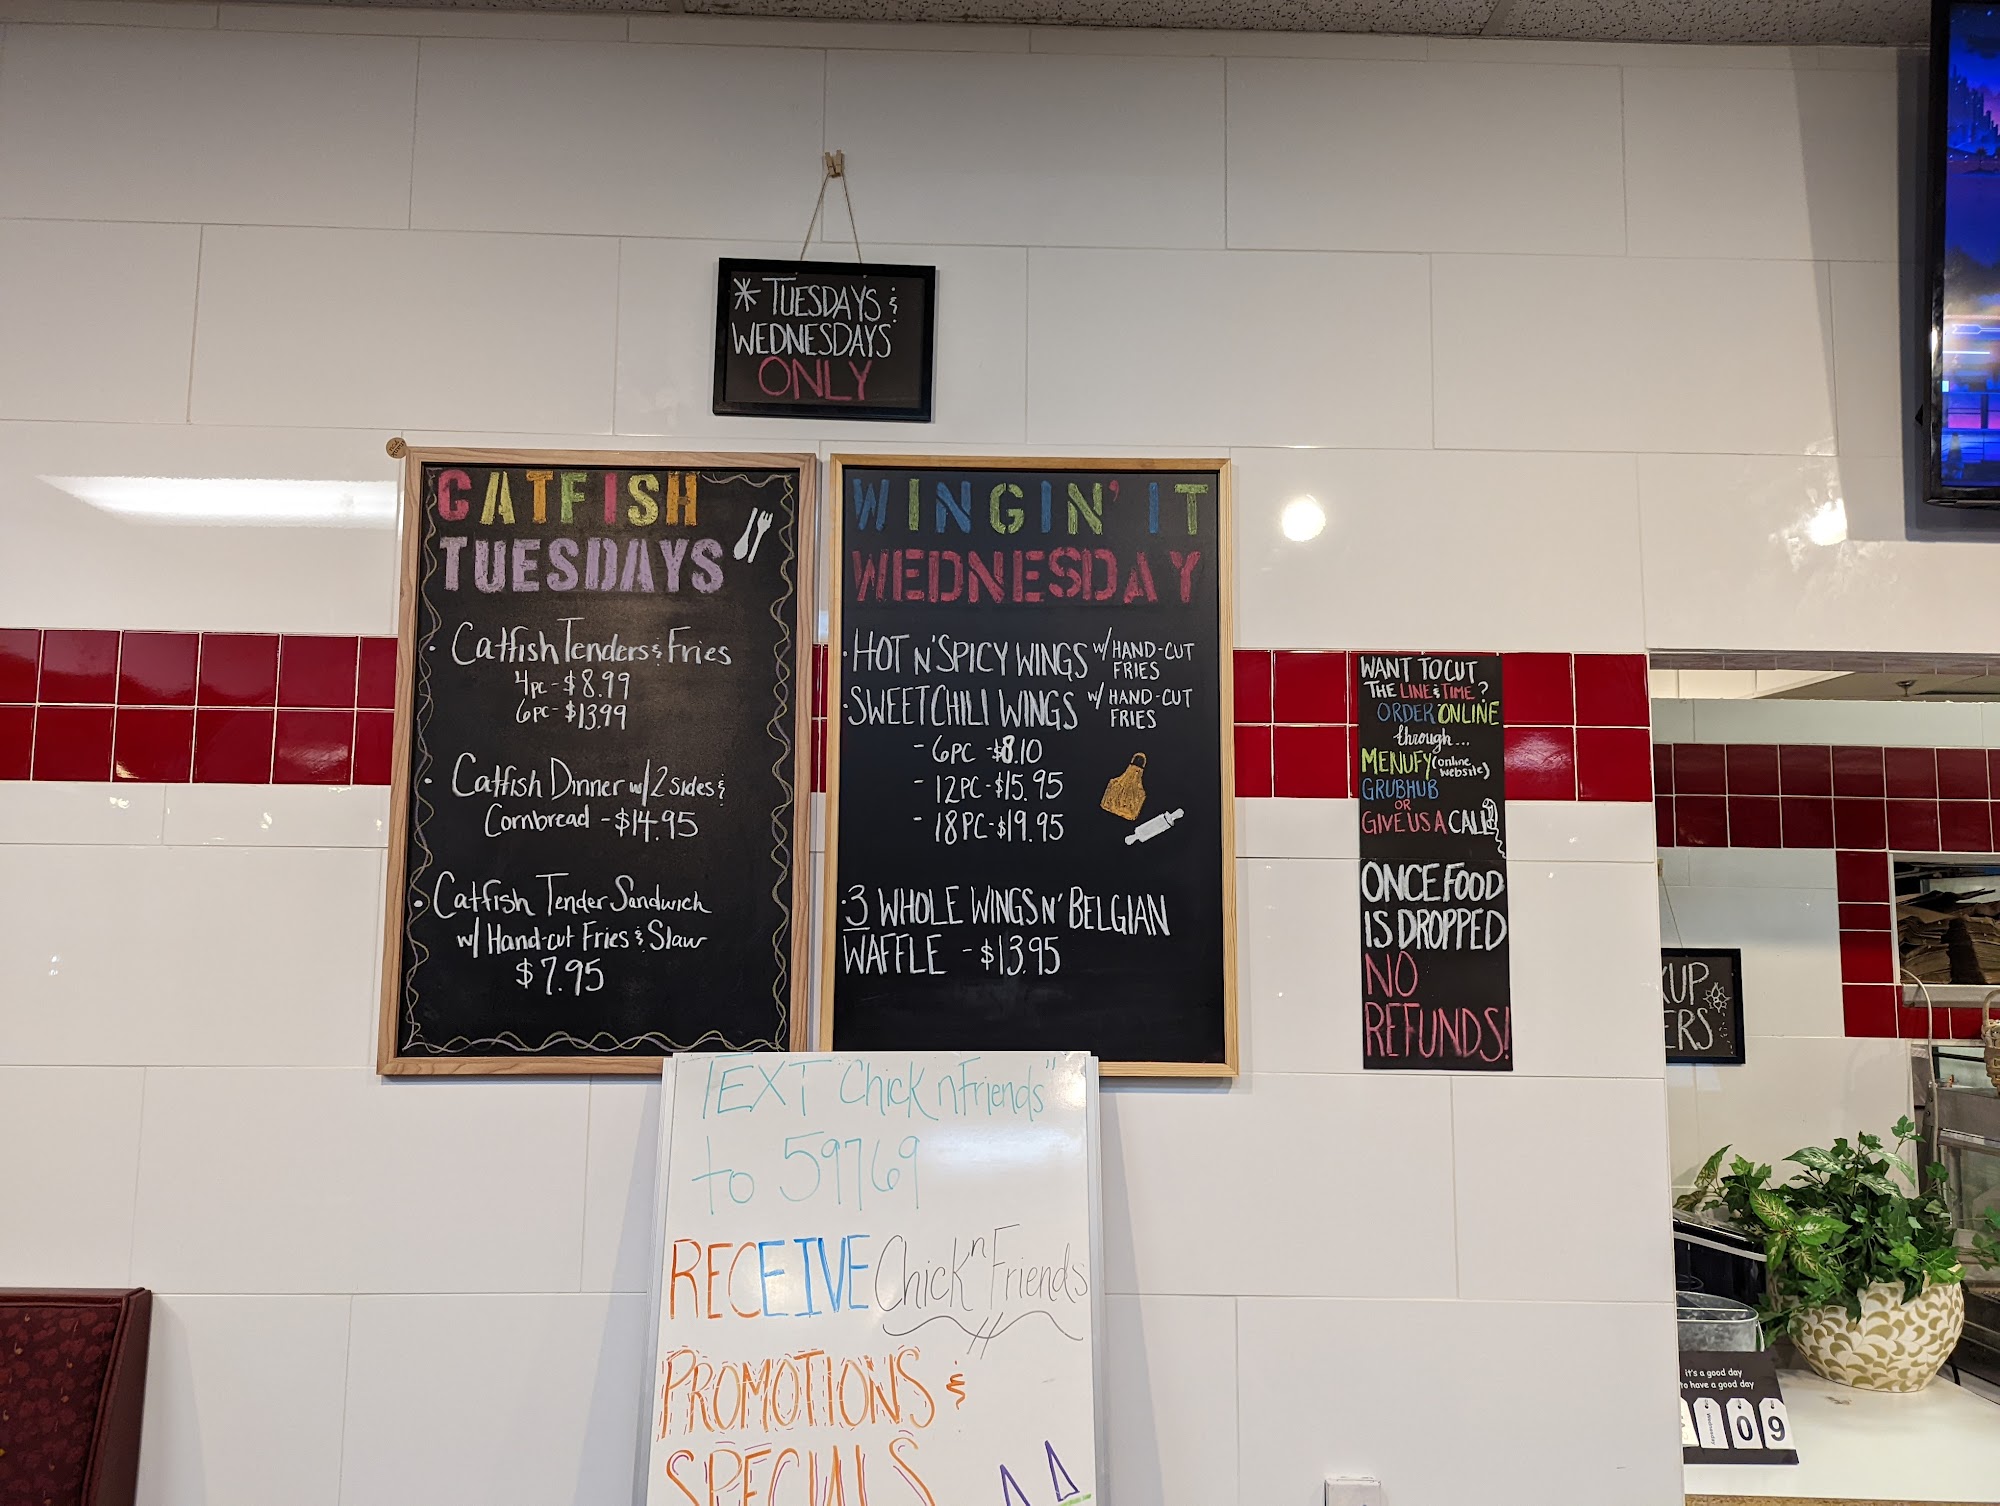 * TUESDAYS &
WEDNESDAYS
ONLY
CATFISH
TUESDAYS
· Catfish Tenders & Fries
4pc - $8.99
6pc - $13.99
· Catfish Dinner w/ 2 sides &
Cornbread - $14.95
· Catfish Tender Sandwich
w/ Hand-cut Fries & Slaw
$7.95
WINGIN' IT
WEDNESDAY
· HOT N' SPICY WINGS w/ HAND-CUT
FRIES
· SWEET CHILI WINGS w/ HAND-CUT
FRIES
- 6PC - $8.10
- 12PC - $15.95
- 18PC - $19.95
· 3 WHOLE WINGS N' BELGIAN
WAFFLE - $13.95
WANT TO CUT
THE LINE & TIME?
ORDER ONLINE
through...
MENUFY (online
website)
GRUBHUB
OR
GIVE US A CALL
ONCE FOOD
IS DROPPED
NO
REFUNDS!
TEXT "Chick nFriends"
to 59769
RECEIVE Chick n Friends
PROMOTIONS &
SPECIALS
KUP
ERS
it's a good day
to have a good day
Wednesday
09